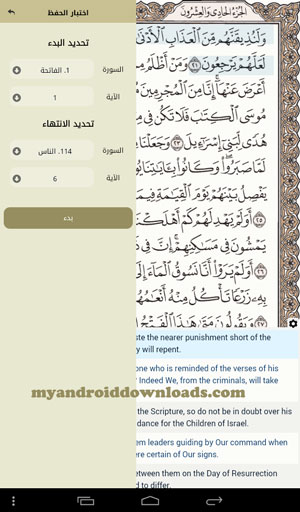 اختبار الحفظ
تحديد البدء
السورة
1. الفاتحة
الآية
1
تحديد الانتهاء
السورة
114. الناس
الآية
6
بدء
الجزء الحادي والعشرون
وَلَنُذِيقَنَّهُم مِّنَ ٱلْعَذَابِ ٱلْأَدْنَىٰ
لَعَلَّهُمْ يَرْجِعُونَ ٢١ وَمَنْ أَظْلَمُ
أَعْرَضَ عَنْهَآ إِنَّا مِنَ ٱلْمُجْرِمِينَ
مُوسَى ٱلْكِتَٰبَ فَلَا تَكُن فِى
هُدًى لِّبَنِىٓ إِسْرَٰٓءِيلَ ٢٣ وَجَعَلْنَا
لَمَّا صَبَرُوا۟ وَكَانُوا۟ بِـَٔايَٰتِنَا
يَفْصِلُ بَيْنَهُمْ يَوْمَ ٱلْقِيَٰمَةِ فِيمَا
٢٥ أَوَلَمْ يَهْدِ لَهُمْ كَمْ أَهْلَكْنَا
يَمْشُونَ فِى مَسَٰكِنِهِمْ إِنَّ فِى
٢٦ أَوَلَمْ يَرَوْا۟ أَنَّا نَسُوقُ ٱلْمَآءَ إِلَى
بِهِۦ زَرْعًا تَأْكُلُ مِنْهُ أَنْعَٰمُهُمْ
٢٧ وَيَقُولُونَ مَتَىٰ هَٰذَا ٱلْفَتْحُ
te the nearer punishment short of the
y will repent.
one who is reminded of the verses of his
Indeed We, from the criminals, will take
myandroiddownloads.com
the Scripture, so do not be in doubt over his
dance for the Children of Israel.
em leaders guiding by Our command when
re certain of Our signs.
between them on the Day of Resurrection
d to differ.